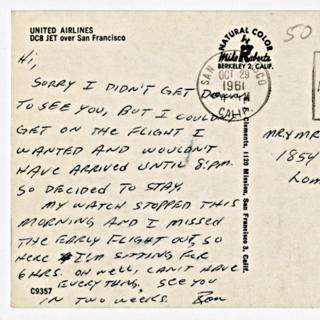 UNITED AIRLINES
DC8 JET over San Francisco
Hi,
SORRY I DIDN'T GET DOWN
TO SEE YOU, BUT I COULDN'T
GET ON THE FLIGHT I
WANTED AND WOULDN'T
HAVE ARRIVED UNTIL 8:PM.
SO DECIDED TO STAY.
MY WATCH STOPPED THIS
MORNING AND I MISSED
THE EARLY FLIGHT OUT, SO
HERE I'M SITTING FOR
6 HRS. OH WELL, CAN'T HAVE
EVERYTHING. SEE YOU
IN TWO WEEKS.
C9357
NATURAL COLOR
by
Mike Roberts
BERKELEY 2, CALIF.
SAN
OCT 29
1961
CALIF
Clements, 1120 Mission, San Francisco 3, Calif.
50
MR & MR
1854
LOM